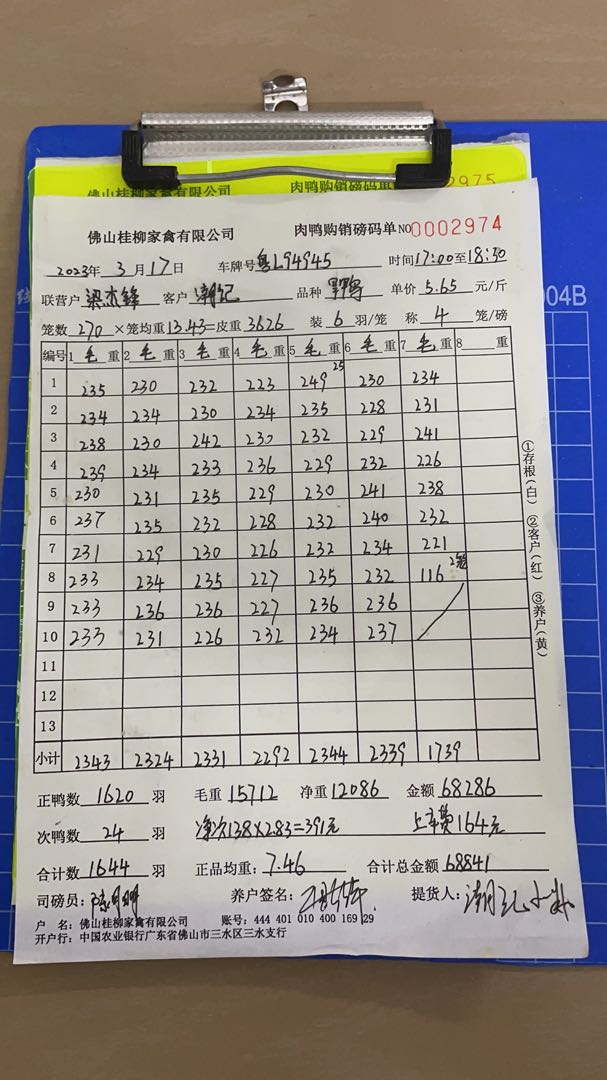 2975
佛山桂柳家禽有限公司 肉鸭购销磅码单
佛山桂柳家禽有限公司 肉鸭购销磅码单 NO 0002974
2023年 3月17日 车牌号 粤L94945 时间 17:00至18:50
联营户 梁杰锋 客户 潮记 品种 单价 5.65 元/斤
004B
笼数 270 ×笼均重 13.43=皮重 3626 装 6 羽/笼 称 4 笼/磅
编号 1 毛 重 2 毛 重 3 毛 重 4 毛 重 5 毛 重 6 毛 重 7 毛 重 8 重
1 235 230 232 223 249 25 230 234
2 234 234 230 234 235 228 231
3 238 230 242 230 232 229 241
4 239 234 233 236 229 232 226
5 230 231 235 229 230 241 238
6 237 235 232 228 232 240 232
7 231 229 230 226 232 234 221
8 233 234 235 227 235 232 116 2笼
9 233 236 236 227 236 236
10 233 231 226 232 234 237
11
12
13
小计 2343 2324 2331 2292 2344 2339 1739
①存根(白) ②客户(红) ③养户(黄)
正鸭数 1620 羽 毛重 15712 净重 12086 金额 68286
次鸭数 24 羽 净次138×2.83=391元 上车费164元
合计数 1644 羽 正品均重: 7.46 合计总金额 68841
司磅员: 养户签名: 提货人:
户 名: 佛山桂柳家禽有限公司 账号: 444 401 010 400 169 29
开户行: 中国农业银行广东省佛山市三水区三水支行